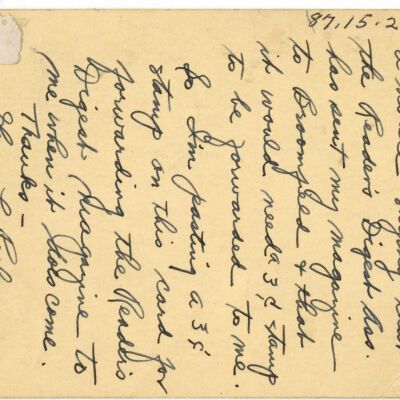 87.15.2
a notice saying that
the Readers Digest Ass.
has sent my magazine
to Broomfield & that
it would need a 3¢ stamp
to be forwarded to me.
So I'm pasting a 3¢
stamp on this card for
forwarding the Readers
Digest Magazine to
me when it does come.
Thanks –